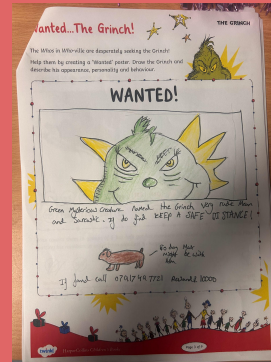 Wanted...The Grinch!
THE GRINCH
The Whos in Who-ville are desperately seeking the Grinch!
Help them by creating a 'Wanted' poster. Draw the Grinch and
describe his appearance, personality and behaviour.
WANTED!
Green Mysterious Creature Named the Grinch very rude Mean
and Sarcastic. if to find KEEP A SAFE DISTANCE!
his dog Max
might be with
him
If found call
twinkl